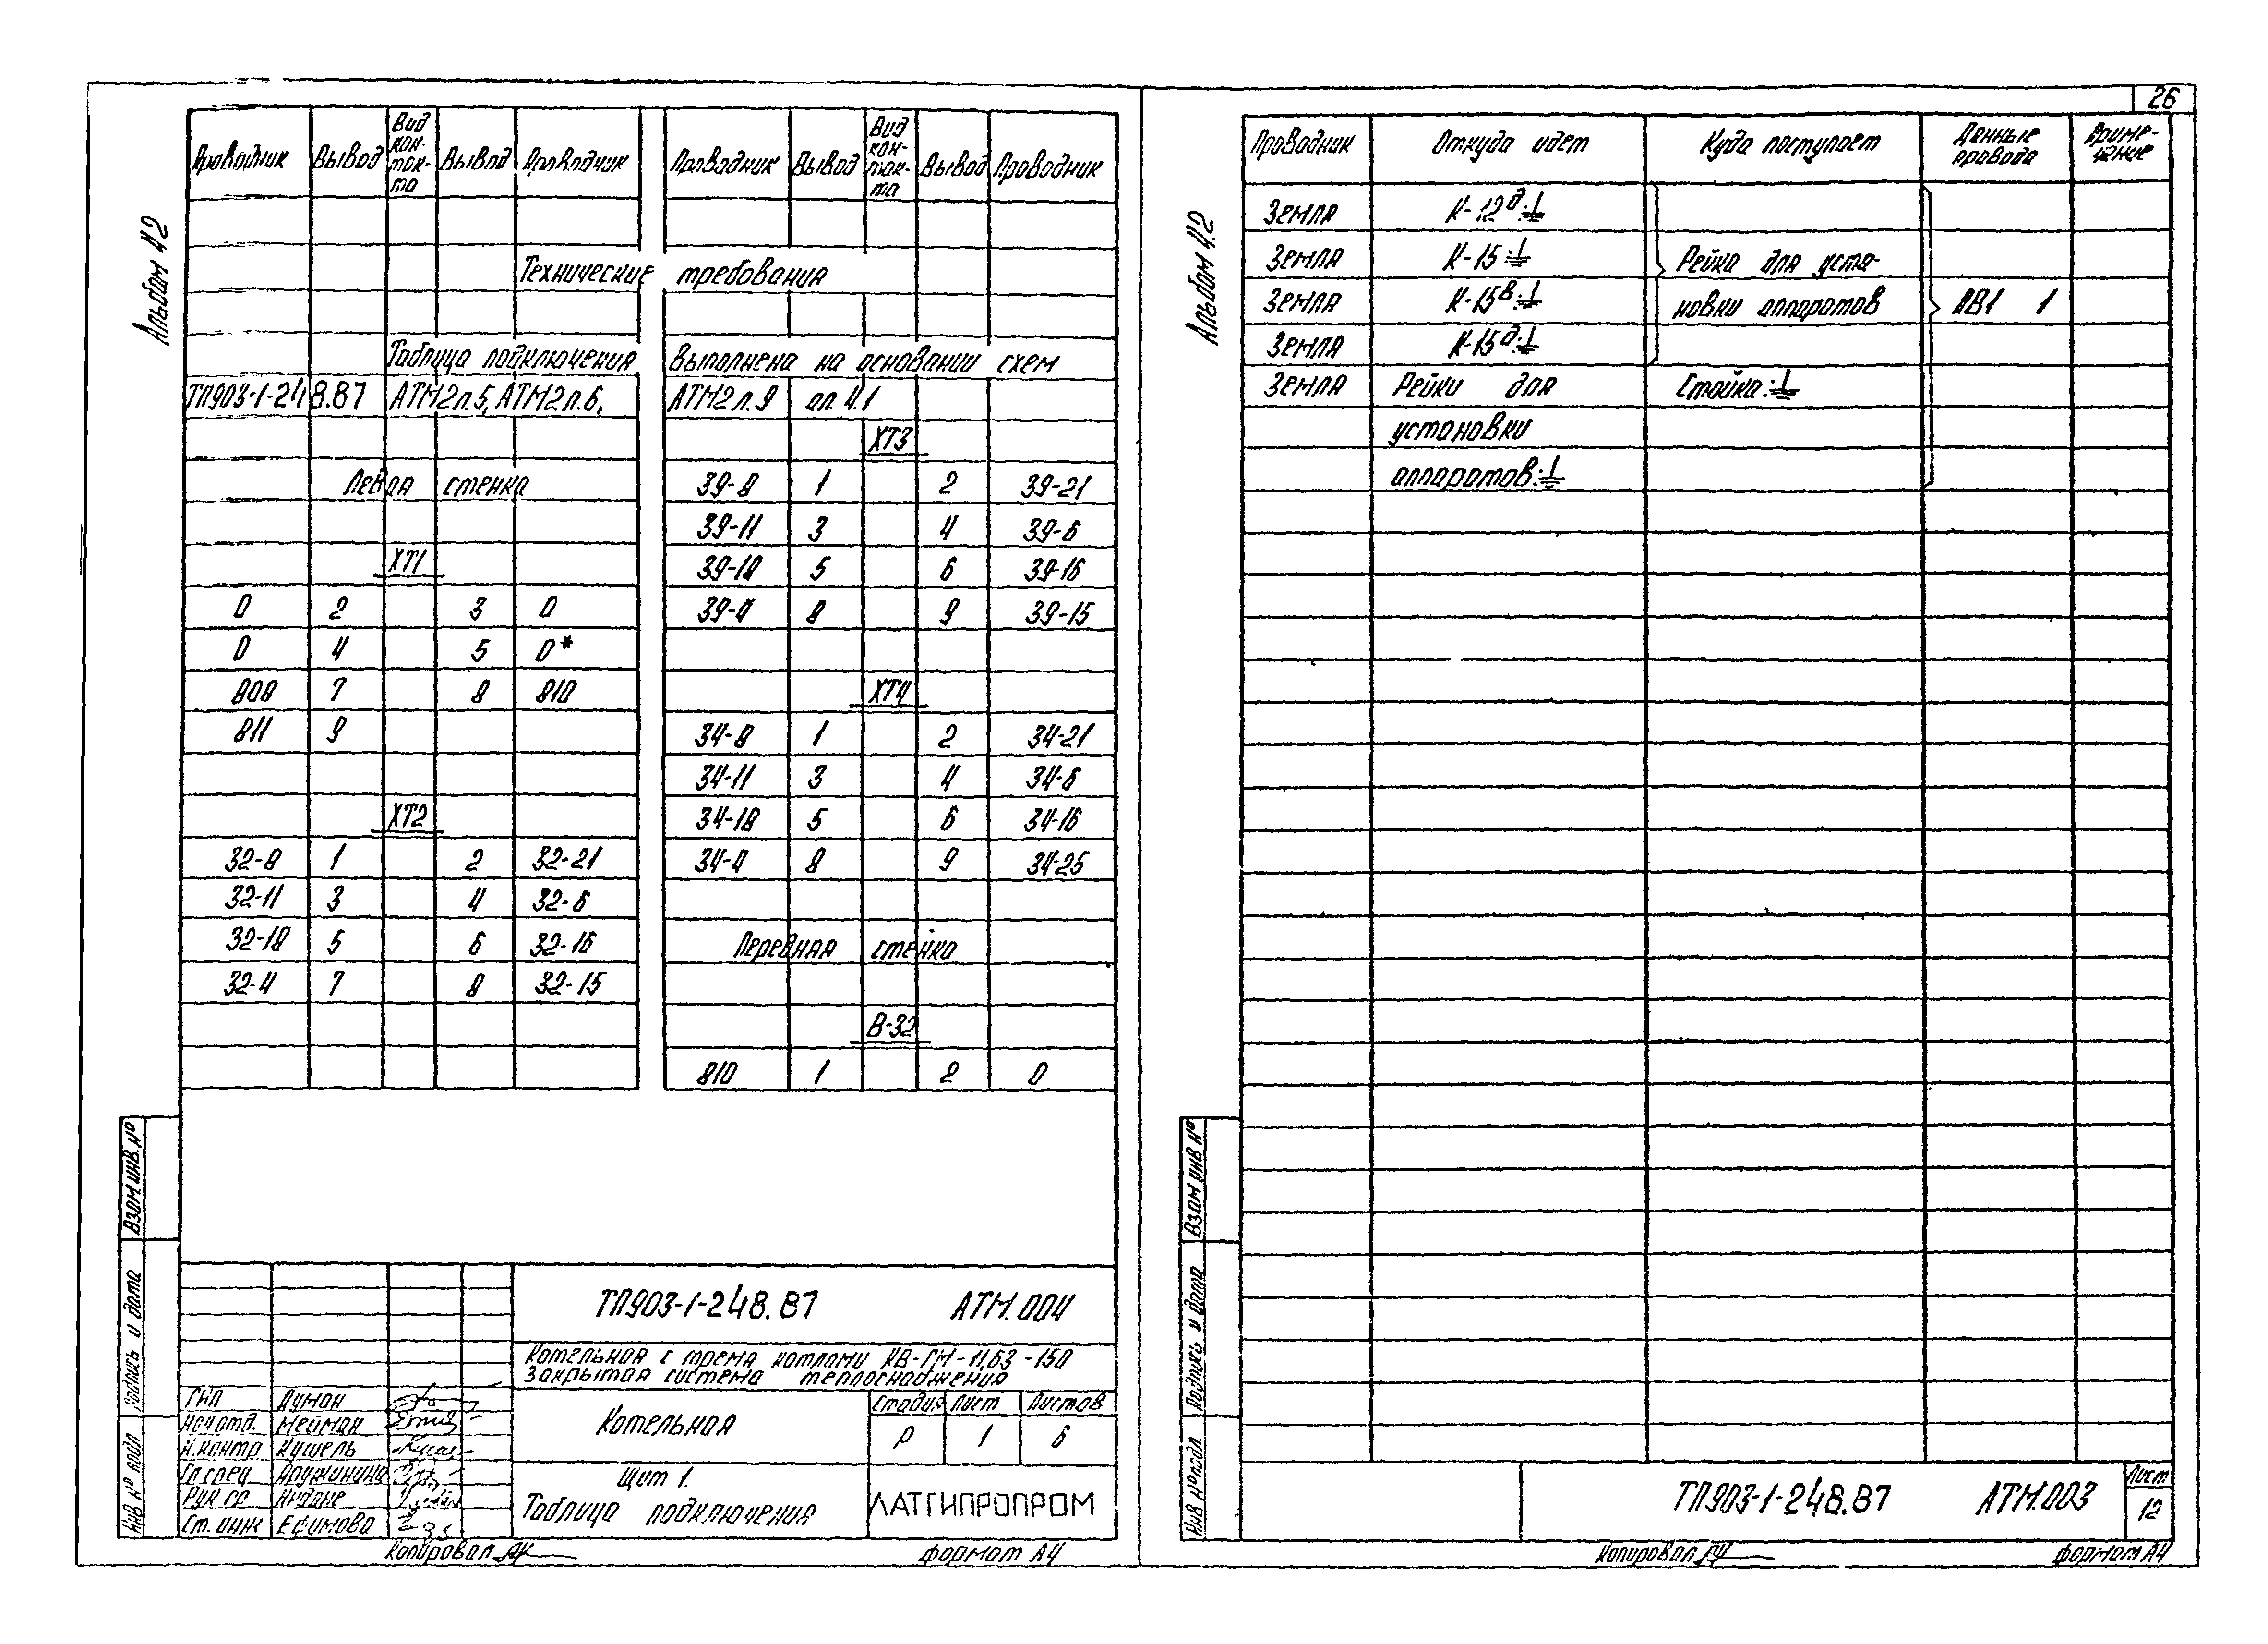 26
Альбом 4.2
Проводник Вывод Вид контакта Вывод Проводник
Технические требования
Таблица подключения выполнена на основании схем
ТП903-1-248.87 АТМ2л.5, АТМ2л.6, АТМ2л.9 ал. 4.1
Левая стенка
ХТ1
0 2 3 0
0 4 5 0*
808 7 8 810
811 9
ХТ2
32-8 1 2 32-21
32-11 3 4 32-6
32-18 5 6 32-16
32-4 7 8 32-15
Проводник Вывод Вид контакта Вывод Проводник
ХТ3
39-8 1 2 39-21
39-11 3 4 39-6
39-18 5 6 39-16
39-4 8 9 39-15
ХТ4
34-8 1 2 34-21
34-11 3 4 34-6
34-18 5 6 34-16
34-4 8 9 34-25
Передняя стенка
В-32
810 1 2 0
Взам инв. №
Подпись и дата
Инв № подл
ТП903-1-248.87 АТМ.004
Котельная с тремя котлами КВ-ГМ-11,63-150
Закрытая система теплоснабжения
ГИП Думан
Нач отд. Мейман
Н.контр Кушель
Гл.спец Дружинина
Рук гр
Ст. инж Ефимова
Котельная
Стадия Лист Листов
Р 1 6
Щит 1.
Таблица подключения
ЛАТГИПРОПРОМ
Копировал
Формат А4
Альбом 4.2
Проводник Откуда идет Куда поступает Данные провода Примечание
Земля К-12д:⏚
Земля К-15:⏚ Рейка для уста-
Земля К-15в:⏚ новки аппаратов ПВ1 1
Земля К-15д:⏚
Земля Рейки для Стойка:⏚
установки
аппаратов:⏚
Взам инв №
Подпись и дата
Инв № подл
ТП903-1-248.87 АТМ.003
Лист
12
Копировал
Формат А4